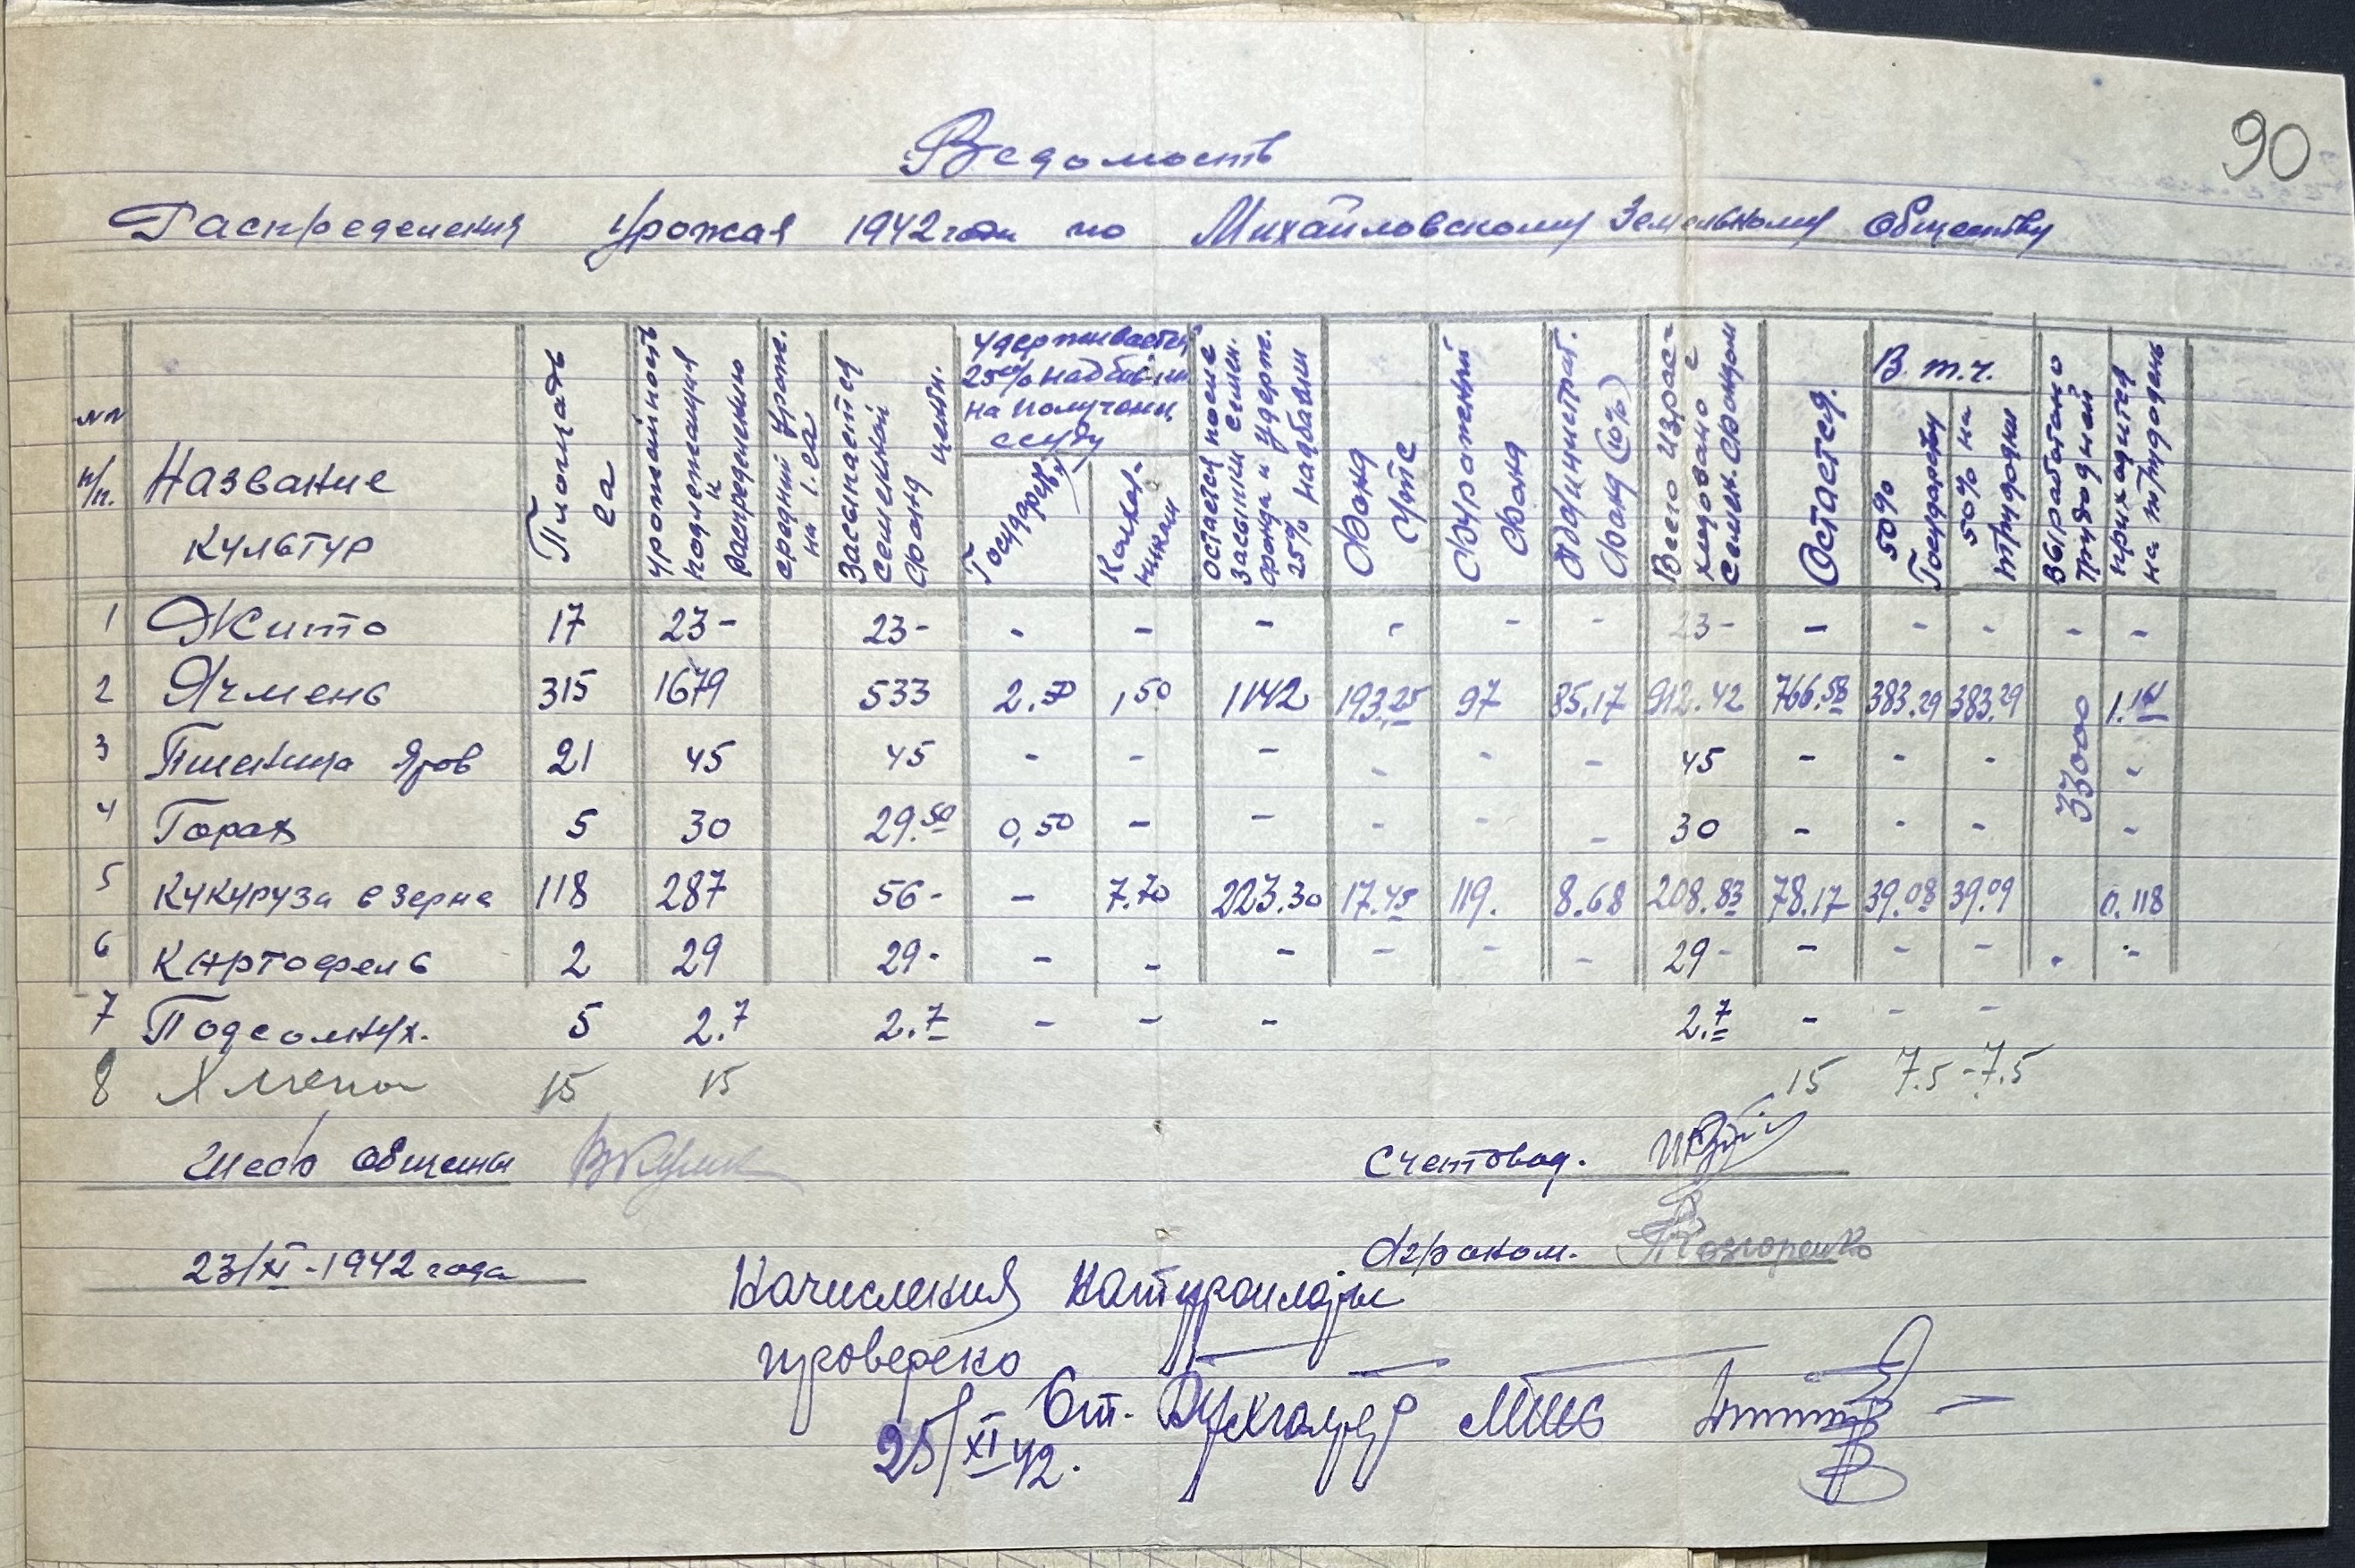 90
Ведомость
Распределения Урожая 1942 года по Михайловскому Земельному Обществу
№№ п/п. | Название культур | Площадь га | урожайность подлежащая к распределению | средний урож. на 1. га | Засыпается семенной фонд центн. | Удерживается 25% надбавки на получен. ссуду | Государству | Колхозникам | остается после засыпки семен. фонда и удерж. 25% надбавки | Фонд УТС | Фуражный Фонд | Администрат. Фонд (10%) | Всего израсходовано с семен. фондом | Остается. | В т.ч. | 50% Государству | 50% на трудодни | выработано трудодней | приходится на трудодень
1 Жито 17 23- 23- - - - - - - 23- - - - - -
2 Ячмень 315 1679 533 2.50 1,50 1142 193,25 97 85.17 912.42 766.58 383.29 383.29 33000 1.161
3 Пшеница Яров 21 45 45 - - - - - - 45 - - - -
4 Горох 5 30 29.50 0,50 - - - - - 30 - - - -
5 Кукуруза в зерне 118 287 56- - 7.70 223.30 17.45 119. 8.68 208.83 78.17 39.08 39.09 0.118
6 Картофель 2 29 29- - - - - - - 29- - - - - -
7 Подсолнух. 5 2.7 2.7 - - - 2.7 - - -
8 15 15 15 7.5-7.5
Шеф общины
Счетовод.
23/XI-1942 года
Агроном.
Начисления Натуроплаты
проверено
Ст. Бухгалтер
25/XI 42.